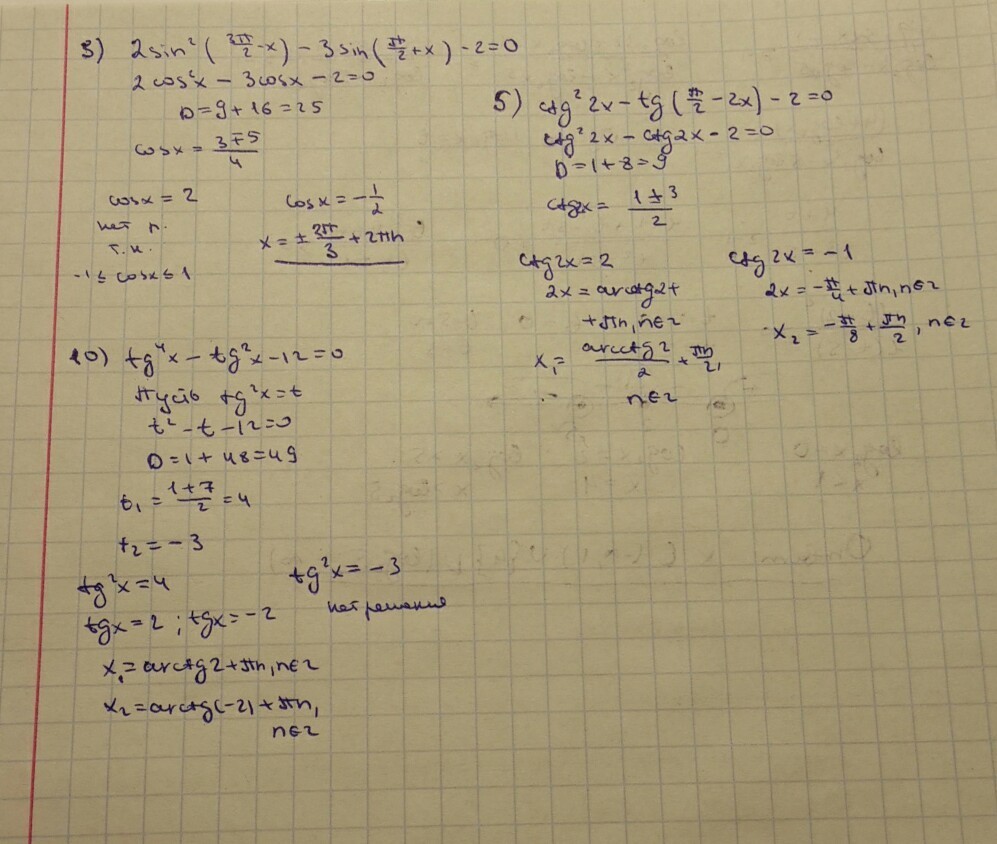 3) 2sin²(3π/2 - x) - 3sin(π/2 + x) - 2 = 0
2cos²x - 3cosx - 2 = 0
D = 9 + 16 = 25
cosx = (3 ∓ 5)/4
cosx = 2
нет р.
т.к.
-1 ≤ cosx ≤ 1
cosx = -1/2
x = ± 2π/3 + 2πn
5) ctg²2x - tg(π/2 - 2x) - 2 = 0
ctg²2x - ctg2x - 2 = 0
D = 1 + 8 = 9
ctg2x = (1 ± 3)/2
ctg2x = 2
2x = arcctg2 +
+ πn, n∈z
x₁ = arcctg2/2 + πn/2,
n∈z
ctg2x = -1
2x = -π/4 + πn, n∈z
x₂ = -π/8 + πn/2, n∈z
10) tg⁴x - tg²x - 12 = 0
Пусть tg²x = t
t² - t - 12 = 0
D = 1 + 48 = 49
t₁ = (1+7)/2 = 4
t₂ = -3
tg²x = 4
tgx = 2 ; tgx = -2
x₁ = arctg2 + πn, n∈z
x₂ = arctg(-2) + πn,
n∈z
tg²x = -3
нет решения